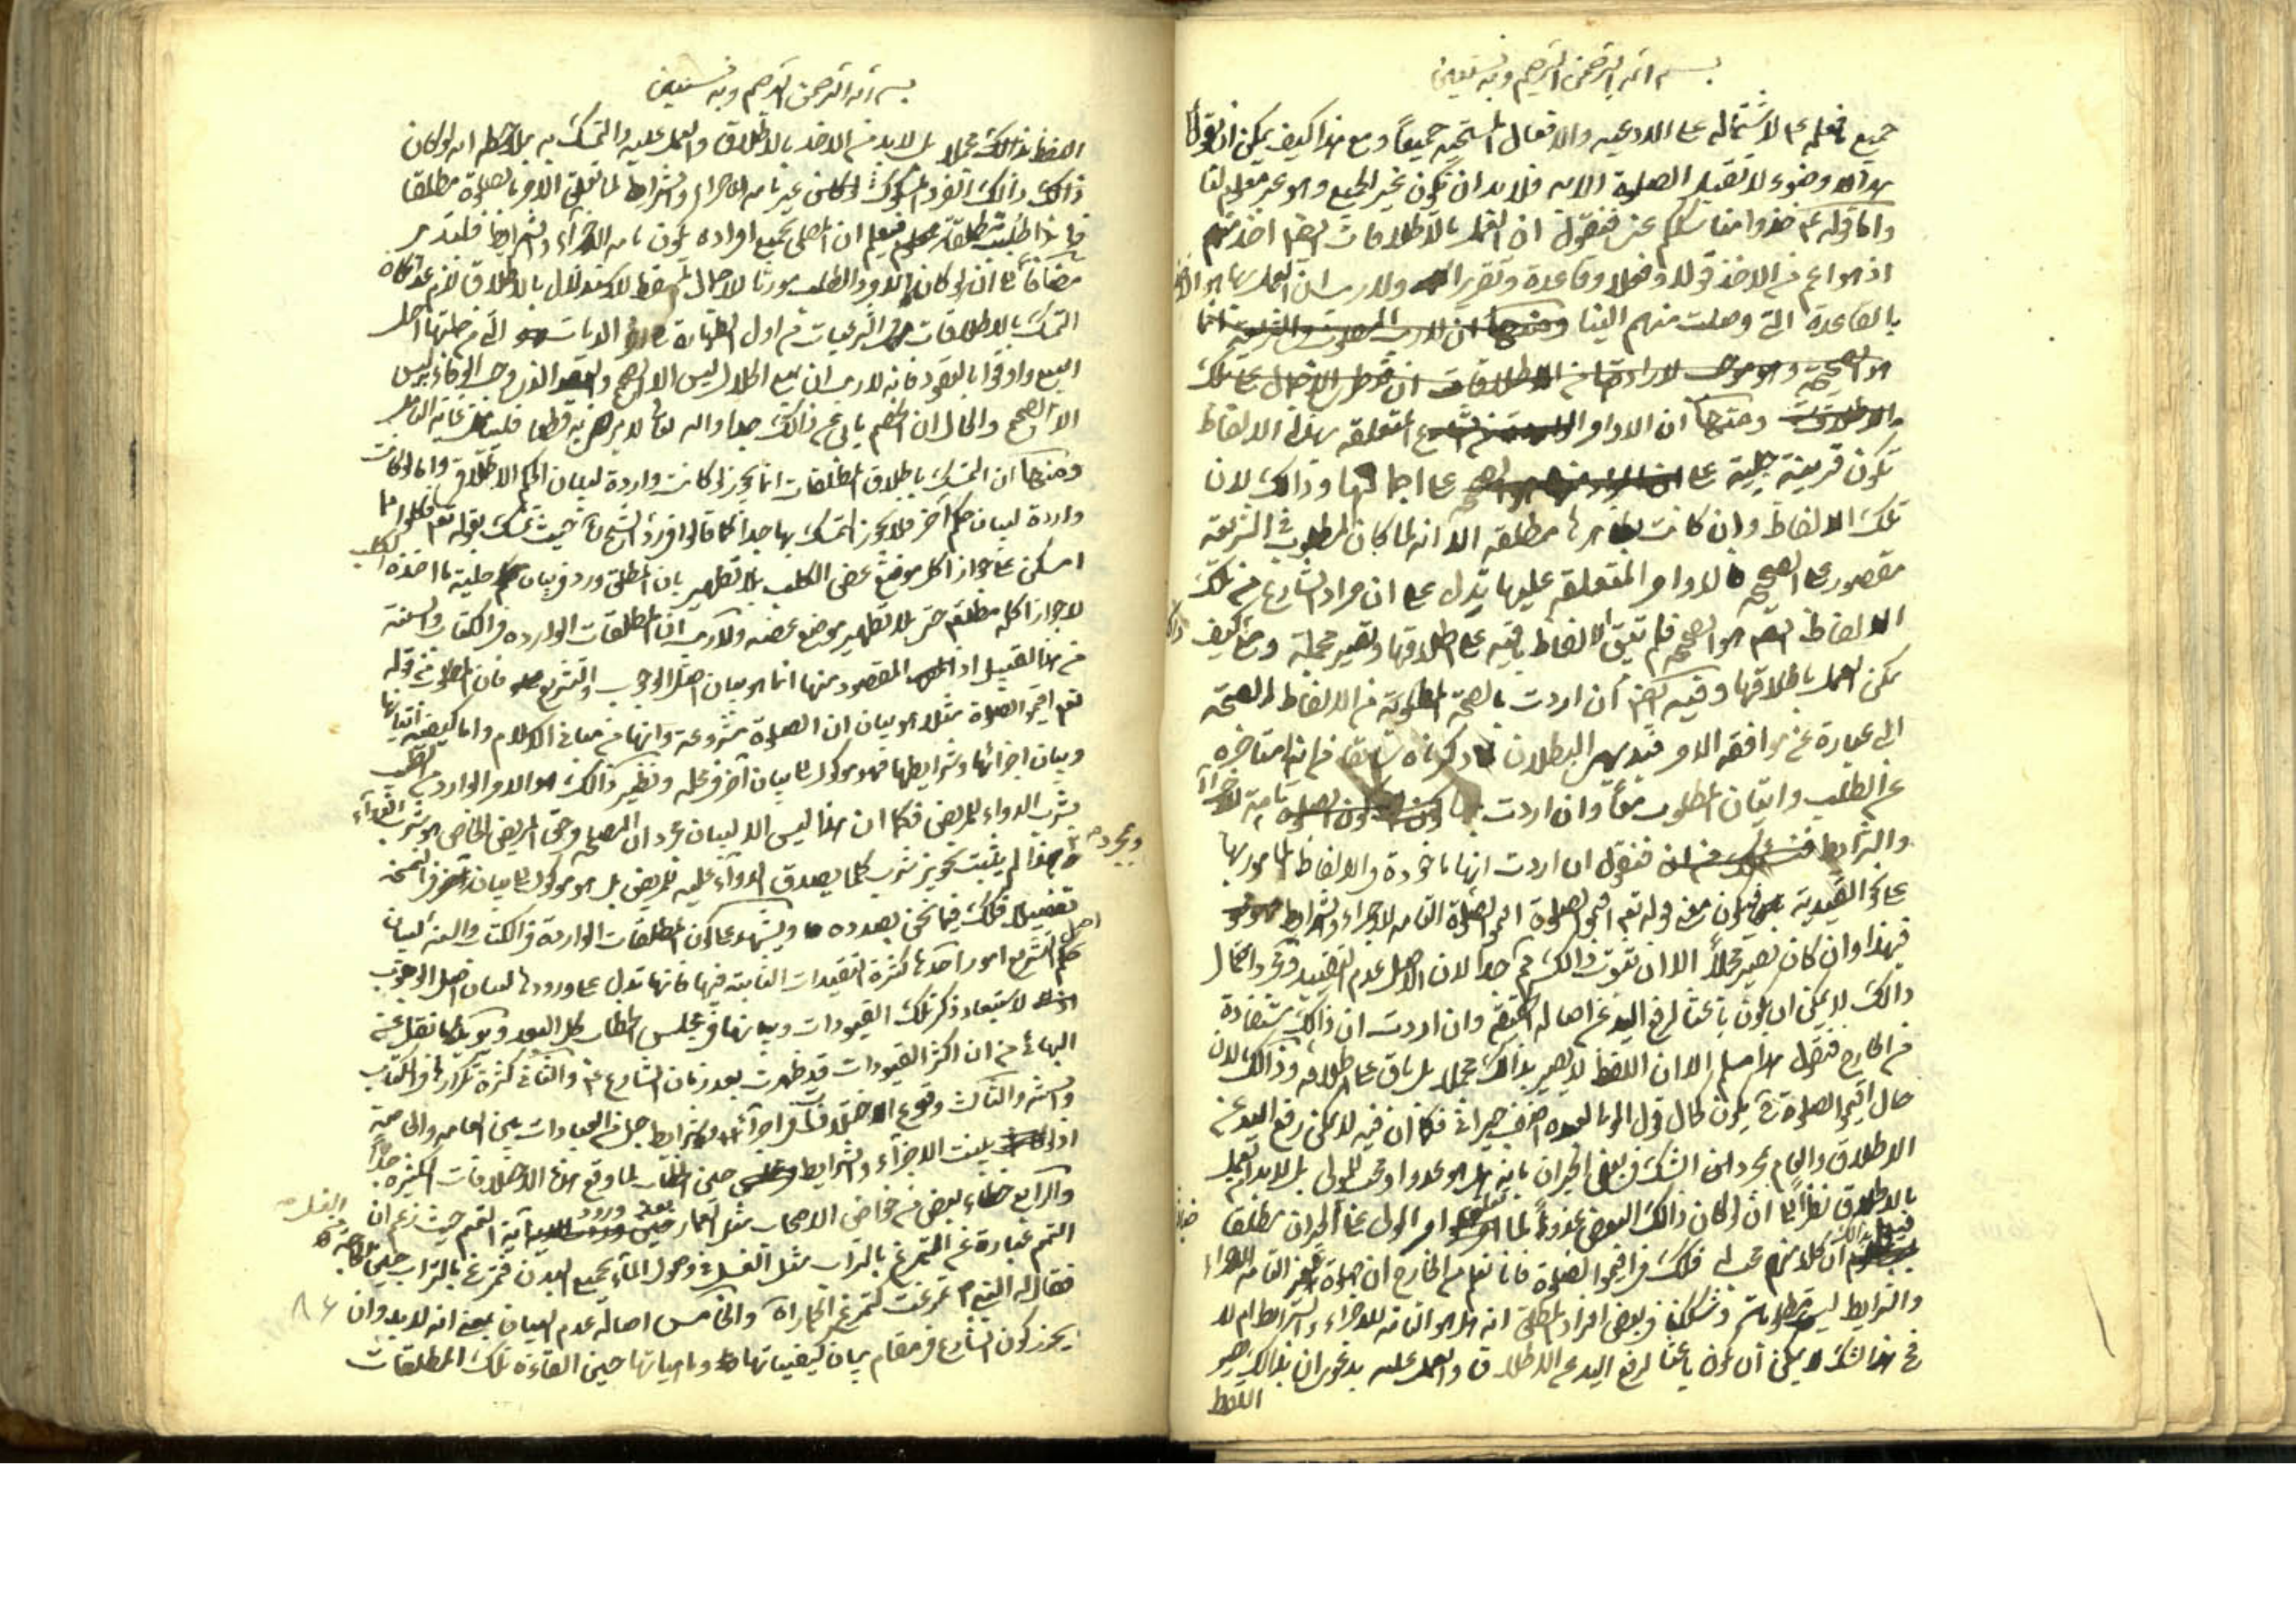 بسم الله الرحمن الرحيم وبه نستعين
جميع ما فعله ع لاشتماله على الادعيه والافعال المستحبه جميعاً ومع هذا كيف يمكن ان يقول
هذا وضوء لا تقبل الصلوة الا به فلا بد ان تكون غير الجميع وهو غير معلوم لنا
واما قوله ع خذوا مناسككم عنى فنقول ان العمل بالاطلاقات ايضا اخذ منهم
اذ هو اعم من الاخذ قولا وفعلا وقاعدة وتقريرا ولا ريب ان العمل بها هو الاخذ
بالقاعدة التى وصلت منهم الينا
ومنها ان الاوامر المتعلقه بهذه الالفاظ
تكون قرينة جليه على اجمالها وذالك لان
تلك الالفاظ وان كانت بظاهرها مطلقه الا انه لما كان المطلوب فى الشريعه
مقصورا على الصحيح فالاوامر المتعلقه عليها تدل على ان مراد الشارع من تلك
الالفاظ ايضا هو الصحيح فلم تبق الالفاظ باقيه على اطلاقها وتصير مجمله وح كيف
يمكن العمل باطلاقها وفيه ايضا ان اردت بالصحة المطلوبة من الالفاظ الصحة
التى عبارة عن موافقه الامر فبديهى البطلان لما ذكرناه سابقا فانها متاخره
عن الطلب واتيان المطلوب معا وان اردت بها تامة الاجزاء
والشرايط فنقول ان اردت انها ماخوذة فى الالفاظ المامور بها
على نحو القيدية فيكون معنى قوله تعم اقيموا الصلوة اقيموا الصلوة التامه الاجزاء والشرايط
فهذا وان كان تصير مجملاً الا ان ثبوت ذالك مم جدا لان الاصل عدم التقييد ومجرد احتمال
ذالك لا يمكن ان يكون باعثا لرفع اليد عن اصاله الحقيقه وان اردت ان ذالك مستفادة
من الخارج فنقول هذا مسلم الا ان اللفظ لا يصير بذالك مجملا بل باق على اطلاقه وذالك لان
حال اقيموا الصلوة ح يكون كحال قول المولى لعبده اضف جيرانى فكما ان فيه لا يمكن رفع اليد عن
الاطلاق والعام بمجرد الشك فى بعض الجيران بانه هل هو عدو او محب للمولى بل لا بد العمل
بالاطلاق نظرا الى انه لو كان ذالك البعض عدوا لما امر المولى على الجيران مطلقا
ان كلا منهم محب له فكك فى اقيموا الصلوة فانا نعلم من الخارج ان صلوة غير التامه الاجزاء
والشرايط ليس مطلوبة وشككنا فى بعض افراد المطلق انه هل هو التامه للاجزاء والشرايط ام لا
فح هذا الشك لا يمكن ان يكون باعثا لرفع اليد عن الاطلاق والعمل عليه بدعوى ان بذالك يصير
اللفظ
بسم الله الرحمن الرحيم وبه نستعين
اللفظ بذالك مجملا بل لا بد من الاخذ بالاطلاق والعمل عليه والتمسك به بملاحظه انه لو كان
ذالك الفرد المشكوك غير تامه الاجزاء والشرايط لما تعلق الامر بالصلوة مطلقا
فاذا طلب مطلقا فيعلم ان المصلى بجميع افراده يكون تامه الاجزاء والشرايط فليتدبر
مضافا الى انه لو كان الامر والطلب مورثا لاجمال المسقط للاستدلال بالاطلاق لزم عدم امكان
التمسك بالاطلاقات فى الشرعيات من اول الطهارة الى الديات التى من جملتها احل
البيع واوفوا بالعقود فانه لا ريب ان بيع الحلال ليس الا الصحيح والعقد الذى وجب الوفاء به ليس
الا الصحيح والحال ان الخصم يابى عن ذالك جدا والله تعالى لا يرضى به قطعا فليتامل غاية التامل
ومنها ان التمسك باطلاق المطلقات انما يجوز لو كانت واردة لبيان الحكم الاطلاق واما لو كانت
واردة لبيان حكم آخر فلا يجوز التمسك بها جدا كما قالوا فى رد الشيخ ره حيث تمسك بقوله تعم فكلوا مما
امسكن على جواز اكل موضع عض الكلب بلا تطهير بان المطلق ورد فى بيان حليه ما اخذه الكلب
لا جواز اكله مطلقا حتى بلا تطهير موضع عضه ولا ريب ان المطلقات الوارده فى الكتاب والسنه
من هذا القبيل اذ المقصود منها انما هو بيان اصل الوجوب والتشريع فان المطلوب من قوله
تعم اقيموا الصلوة مثلا هو بيان ان الصلوة مشروعة وانها من مبانى الاسلام واما كيفيه اتيانها
وبيان اجزائها وشرايطها فهو موكول الى بيان آخر فى محله ونظير ذالك هو الامر الوارد من الطبيب
بشرب الدواء للمريض فكما ان هذا ليس الا لبيان مجرد ان المصلحه فى حق المريض الخاص هو شرب الدواء
وبمجرد هذا لم يثبت تجويز شرب كلما يصدق الدواء عليه للمريض بل هو موكول الى بيان آخر فى النسخه
تفصيلا فكك فيما نحن بصدده ويشهد على كون المطلقات الواردة فى الكتاب والسنه لبيان
اصل التشريع امور احدها كثرة التقييدات الثابته فيها فانها تدل على ورودها لبيان اصل الوجوب
لاستبعاد ذكر تلك القيودات وبيانها فى مجلس الخطاب كل البعد ويؤيد ما نقل عن
البهائى من ان اكثر القيودات قد ظهرت بعد زمان الشارع ع والثانى كثرة تكرارها فى الكتاب
والسنه والثالث وقوع الاختلافات فى اجزاء وشرايط جل من العبادات بين العامه والخاصه
اذ لو بينت الاجزاء والشرايط حين الخطاب لما وقع هذه الاختلافات الكثيره جداً
والرابع خطاء بعض من خواص الاصحاب مثل العمار بعد ورود آية التيمم حيث زعم ان
التيمم عبارة عن التمرغ بالتراب مثل الغسل فى وصول الماء بجميع البدن فتمرغ بالتراب
فقال له النبى ص تمرغت كتمرغ الحمار والخامس اصاله عدم البيان بمعنى انه لا بد وان
يحرز كون الشارع فى مقام بيان كيفياتها وماهياتها حين القاءه تلك المطلقات
٨٤